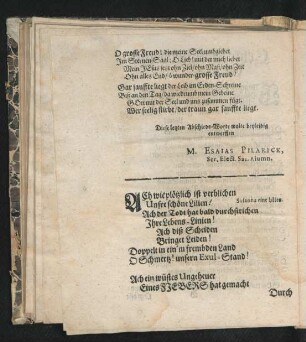 O grosse Freud! die meine Seel
Im Sternen-Saal; O Lieb! mit der mich liebet
Mein JEsus itzt ohn Ziel/ ohn Maß/ ohn Zeit
Ohn alles End/ O wunder-grosse Freud!
Gar sanffte liegt der Leib im Erden-Schreine
Biß an den Tag/ da wiedrumb mein Gebeine
GOtt mit der Seel und uns zusammen fügt.
Wer seelig stirbt/ der traun gar sanffte liegt.
Diese letzten Abschieds-Worte wolte
entwerffen
M. ESAIAS PILARICK,
Ser. Elect. Sax. Alumn.
ACh wie plötzlich ist verblichen
Unsre schöne Lilien!
Ach der Todt hat bald durchstrichen
Ihre Lebens-Linien!
Ach diß Scheiden
Bringet Leiden!
Doppelt in ein'm frembden Land
O Schmertz! unsern Exul-Stand!
Ach ein wüstes Ungeheuer
Eines FIEBERS hat gemacht
Durch